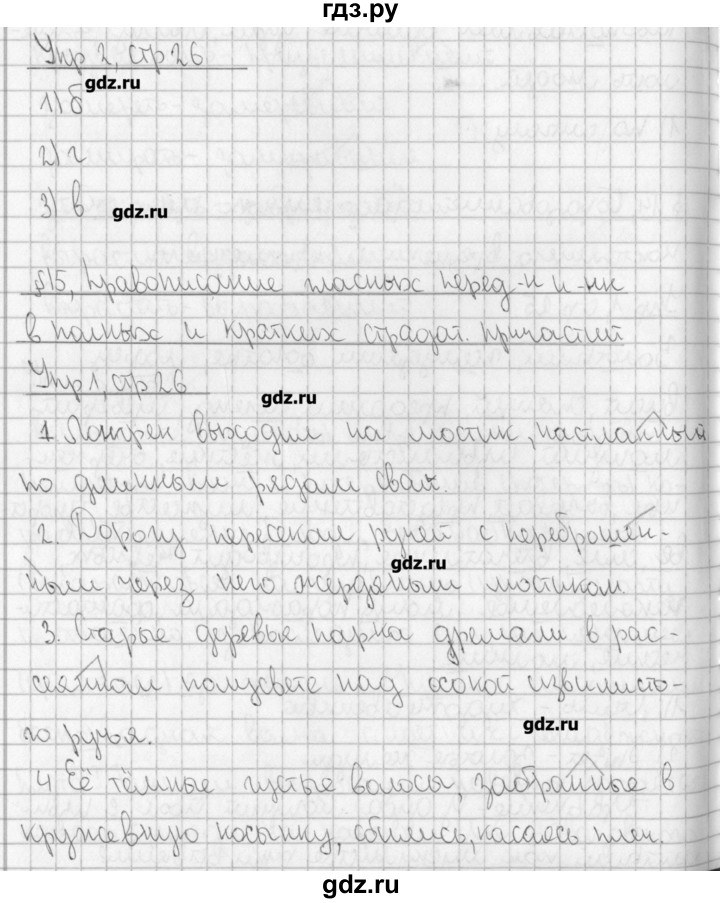 гдз.ру
Упр 2, стр 26
gdz.ru
1) б
2) г
3) в
gdz.ru
§15, Правописание гласных перед -н и -нн
в полных и кратких страдат. причастий
Упр 1, стр 26
gdz.ru
1. Лонгрен выходил на мостик, настланный
по длинным рядам свай.
2. Дорогу пересекал ручей с переброшен-
gdz.ru
ным через него жердяным мостиком.
3. Старые деревья парка дремали в рас-
сеянном полусвете над осокой извилисто-
gdz.ru
го ручья.
4 Её тёмные густые волосы, забранные в
кружевную косынку, сбились, касаясь плеч.
gdz.ru